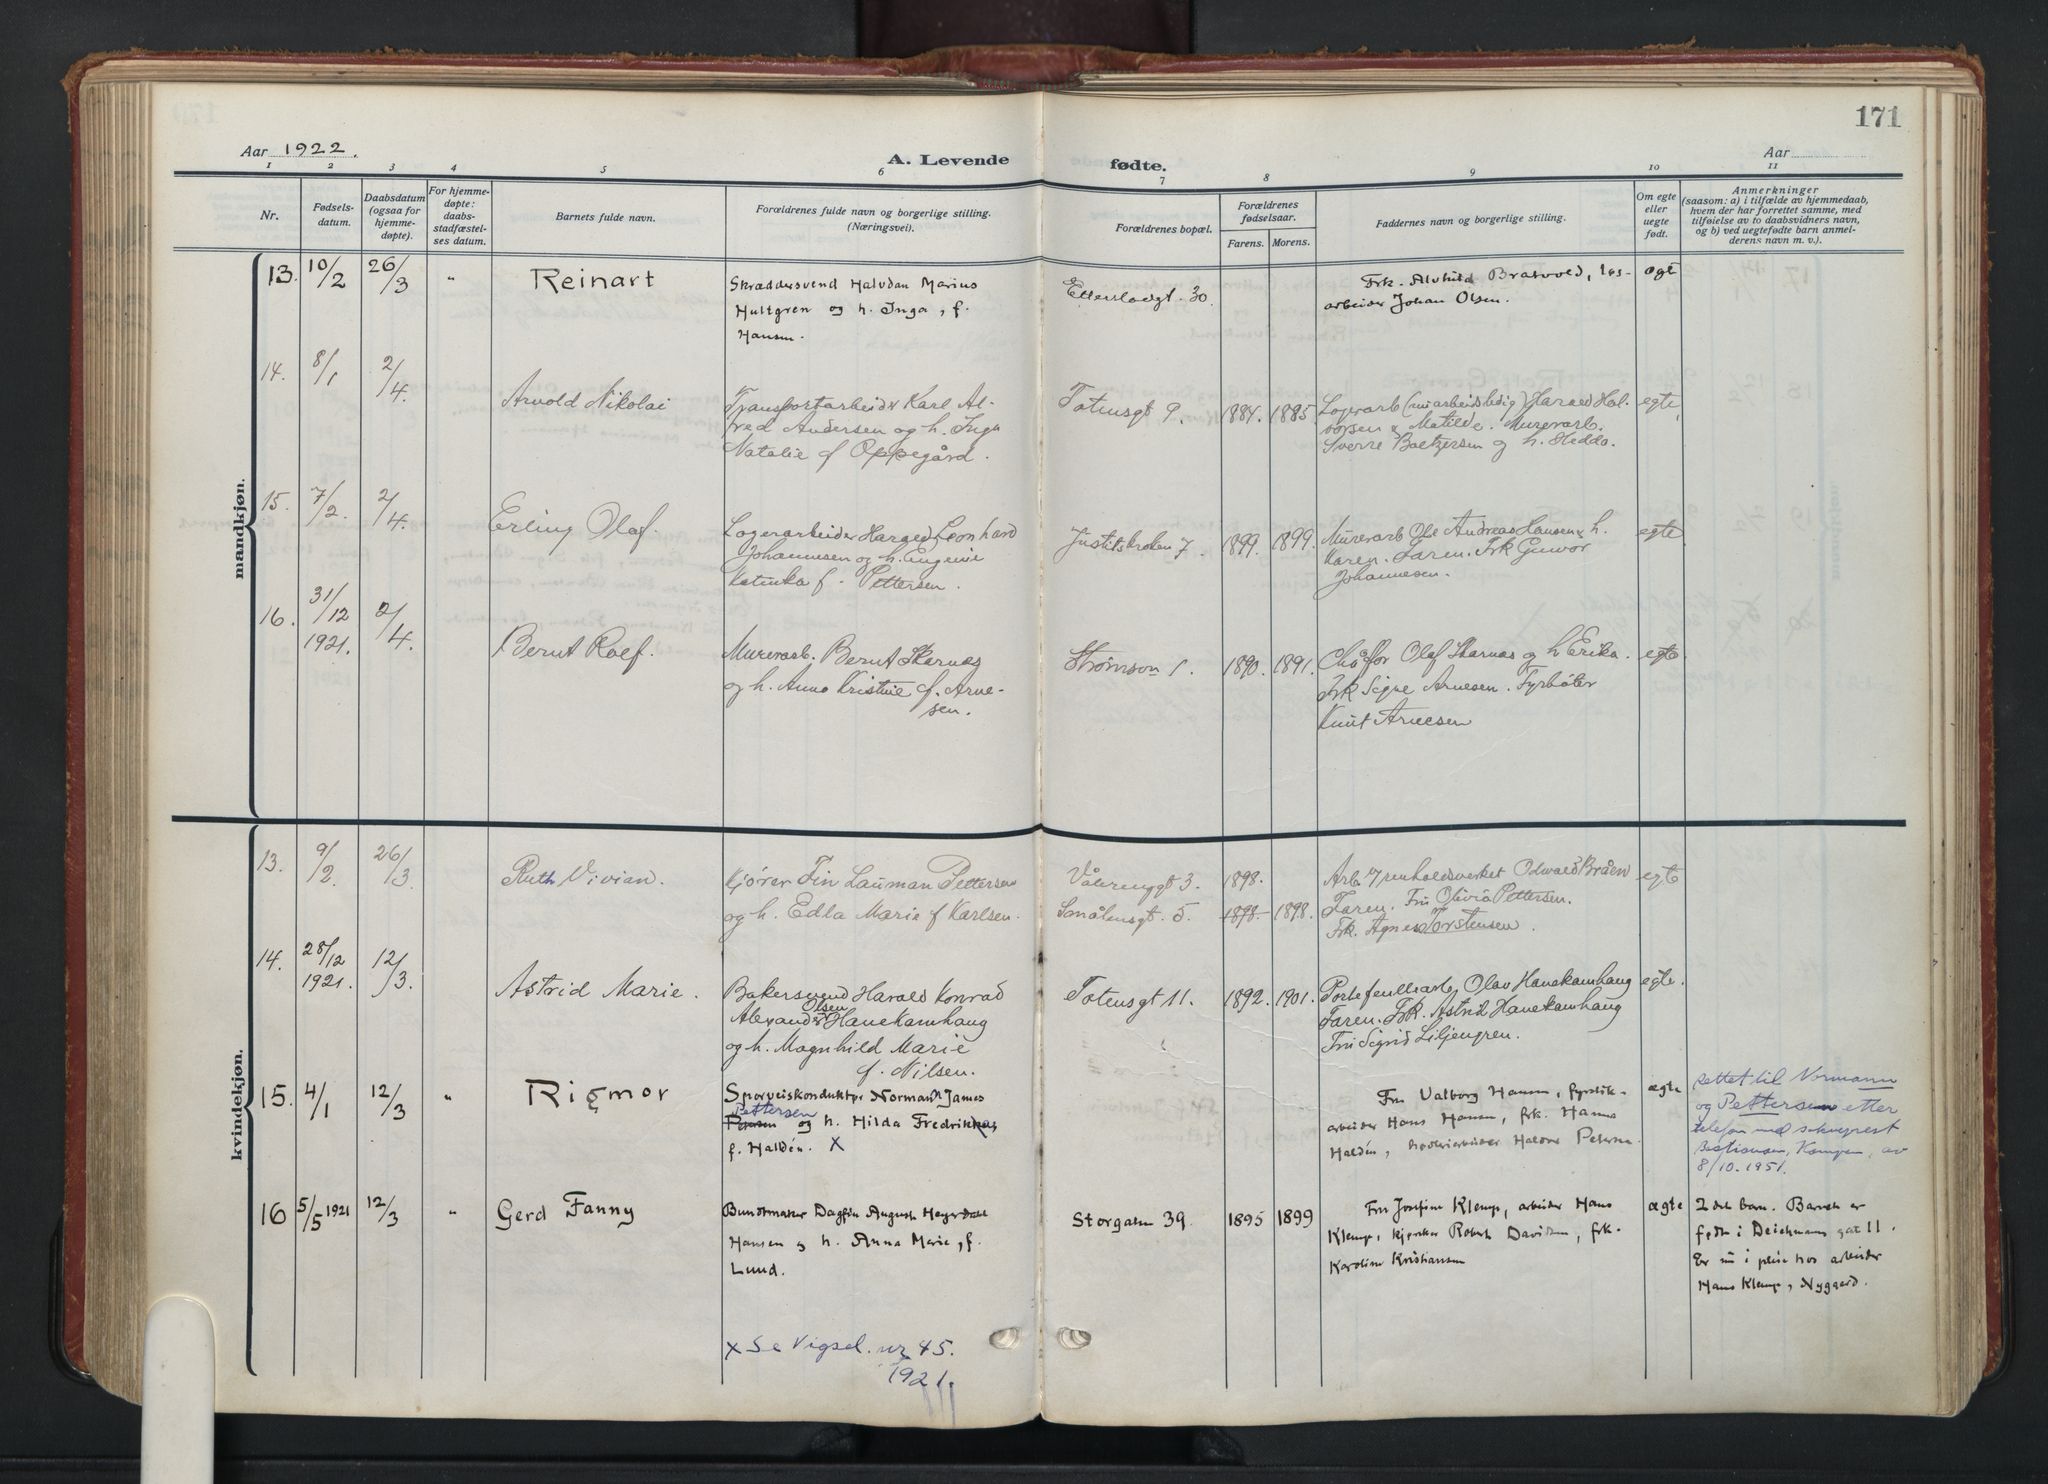 171
Aar 1922.
A. Levende fødte.
Aar
1 2 3 4 5 6 7 8 9 10 11
Nr.
Fødsels-
datum.
Daabsdatum
(ogsaa for
hjemme-
døpte).
For hjemme-
døpte:
daabs-
stadfæstel-
ses datum.
Barnets fulde navn.
Forældrenes fulde navn og borgerlige stilling.
(Næringsvei).
Forældrenes bopæl.
Forældrenes
fødselsaar.
Farens. Morens.
Faddernes navn og borgerlige stilling.
Om egte
eller
uegte
født.
Anmerkninger
(saasom: a) i tilfælde av hjemmedaab,
hvem der har forrettet samme, med
tilføielse av to daabsvidners navn,
og b) ved uegtefødte barn anmel-
derens navn m. v.).
mandkjøn.
13. 10/2 26/3 "
Reinart
Skræddersvend Halvdan Marius
Hultgren og h. Inga, f.
Hansen.
Etterstadgt. 30.
Frk. Alvhild Bratvold, løs-
arbeider Johan Olsen.
ægte
14. 8/1 2/4.
Arvold Nikolai
Transportarbeider Karl Al-
fred Andersen og h. Inga
Natalie f Oppegård.
Totensgt 9. 1884. 1885.
Lagerarb (nu arbeidsledig) Harald Hal-
vorsen & Matilde. Murerarb.
Sverre Baltzersen og h. Hedda.
egte
15. 7/2. 2/4.
Erling Olaf.
Lagerarbeider Harald Leonhard
Johannesen og h. Eugenie
Katinka f. Pettersen.
Justitskroken 7. 1899. 1899.
Murerarb Ole Andreas Hansen & h.
Karen. Faren. Frk Gunvor
Johannesen.
egte.
16. 31/12 1921. 2/4.
Bernt Roef.
Murerarb. Bernt Skarnas
og h. Anna Kristine f. Arne-
sen.
Strømsvn 1. 1890. 1891.
Chåfør Olaf Skarnas og h Erika.
Frk Signe Arnesen. Fyrbøter
Knut Arnesen
egte.
kvindekjøn.
13. 9/2. 26/3.
Ruth Vivian.
Kjører Fin Lauman Pettersen
og h. Edla Marie f Karlsen.
Vålerenggt 3. 1898.
Smålensgt. 5. 1898. 1898.
Arb. i renholdsverket Odvald Bråen
Faren. Fru Olivia Pettersen.
Frk. Agnes Torstensen.
egte
14. 28/12 1921. 12/3.
Astrid Marie.
Bakersvend Harald Konrad
Olsen
Alexander Hanekamhaug
og h. Magnhild Marie
f. Nilsen.
Totensgt 11. 1892. 1901.
Portefeullearb Olav Hanekamhaug
Faren. Frk. Astrid Hanekamhaug
Fru Sigrid Liljengren.
egte.
15. 4/1 12/3 "
Rigmor
Sporveiskonduktør Normann James
Pettersen
Petersen og h. Hilda Fredrikke
f. Haldén. X
Fru Valborg Hansen, fyrstik-
arbeider Hans Hansen, frk. Hanna
Haldén, Petersen
ægte
rettet til Normann
og Pettersen etter
telefon med sokneprest
Bastiansen, Kampen, av
8/10. 1951.
16 5/5 1921 12/3 "
Gerd Fanny
Buntmaker Dagfin August Heyerdahl
Hansen og h. Anna Marie, f.
Lund.
Storgaten 39. 1895 1899
Fru Josefine Klemp, arbeider Hans
Klemp, kjørsker Robert Davidsen, frk.
Karoline Kristiansen
ægte
2 det barn. Barnet er
født i Deichmans gat 11.
Er nu i pleie hos arbeider
Hans Klemp, Nyggerd.
x Se Vigsel. nr 45.
1921.